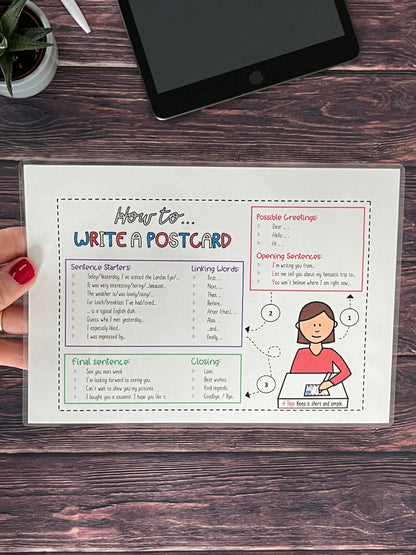 How to...
WRITE A POSTCARD
Possible Greetings:
Dear ... ,
Hello ... ,
Hi ... ,
Opening Sentences:
I'm writing you from...
Let me tell you about my fantastic trip to...
You won't believe where I am right now...
Sentence Starters:
Today/Yesterday, I've visited the London Eye/...
It was very interesting/boring/...because...
The weather is/was lovely/rainy/...
For lunch/breakfast I've had/tried...
... is a typical English dish.
Guess, who I met yesterday...
I especially liked...
I was impressed by...
Linking Words:
First, ...
Next, ...
Then, ...
Before...
After (that), ...
Also, ...
...and...
Finally, ...
Final sentence:
See you next week.
I'm looking forward to seeing you.
Can't wait to show you my pictures.
I bought you a souvenir. I hope you like it.
Closing:
Love,
Best wishes,
Kind regards,
Goodbye, / Bye,
1
2
3
# Tipp: Keep it short and simple.